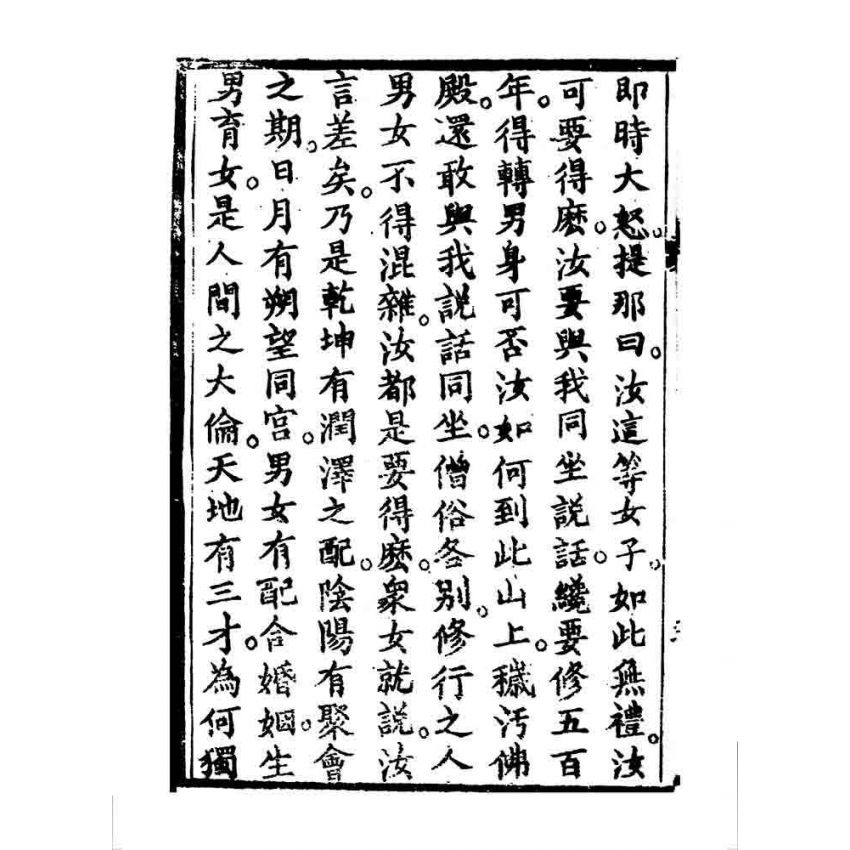 即時大怒。提那曰。汝這等女子。如此無禮。汝
可要得麽。汝要與我同坐說話。纔要修五百
年。得轉男身可否汝如何到此山上。穢汚佛
殿。還敢與我說話同坐。僧俗各別。修行之人
男女不得混雜。汝都是要得麽。衆女就說。汝
言差矣。乃是乾坤有潤澤之配。陰陽有聚會
之期。日月有朔望同宮。男女有配合婚姻。生
男育女。是人間之大倫。天地有三才。為何獨